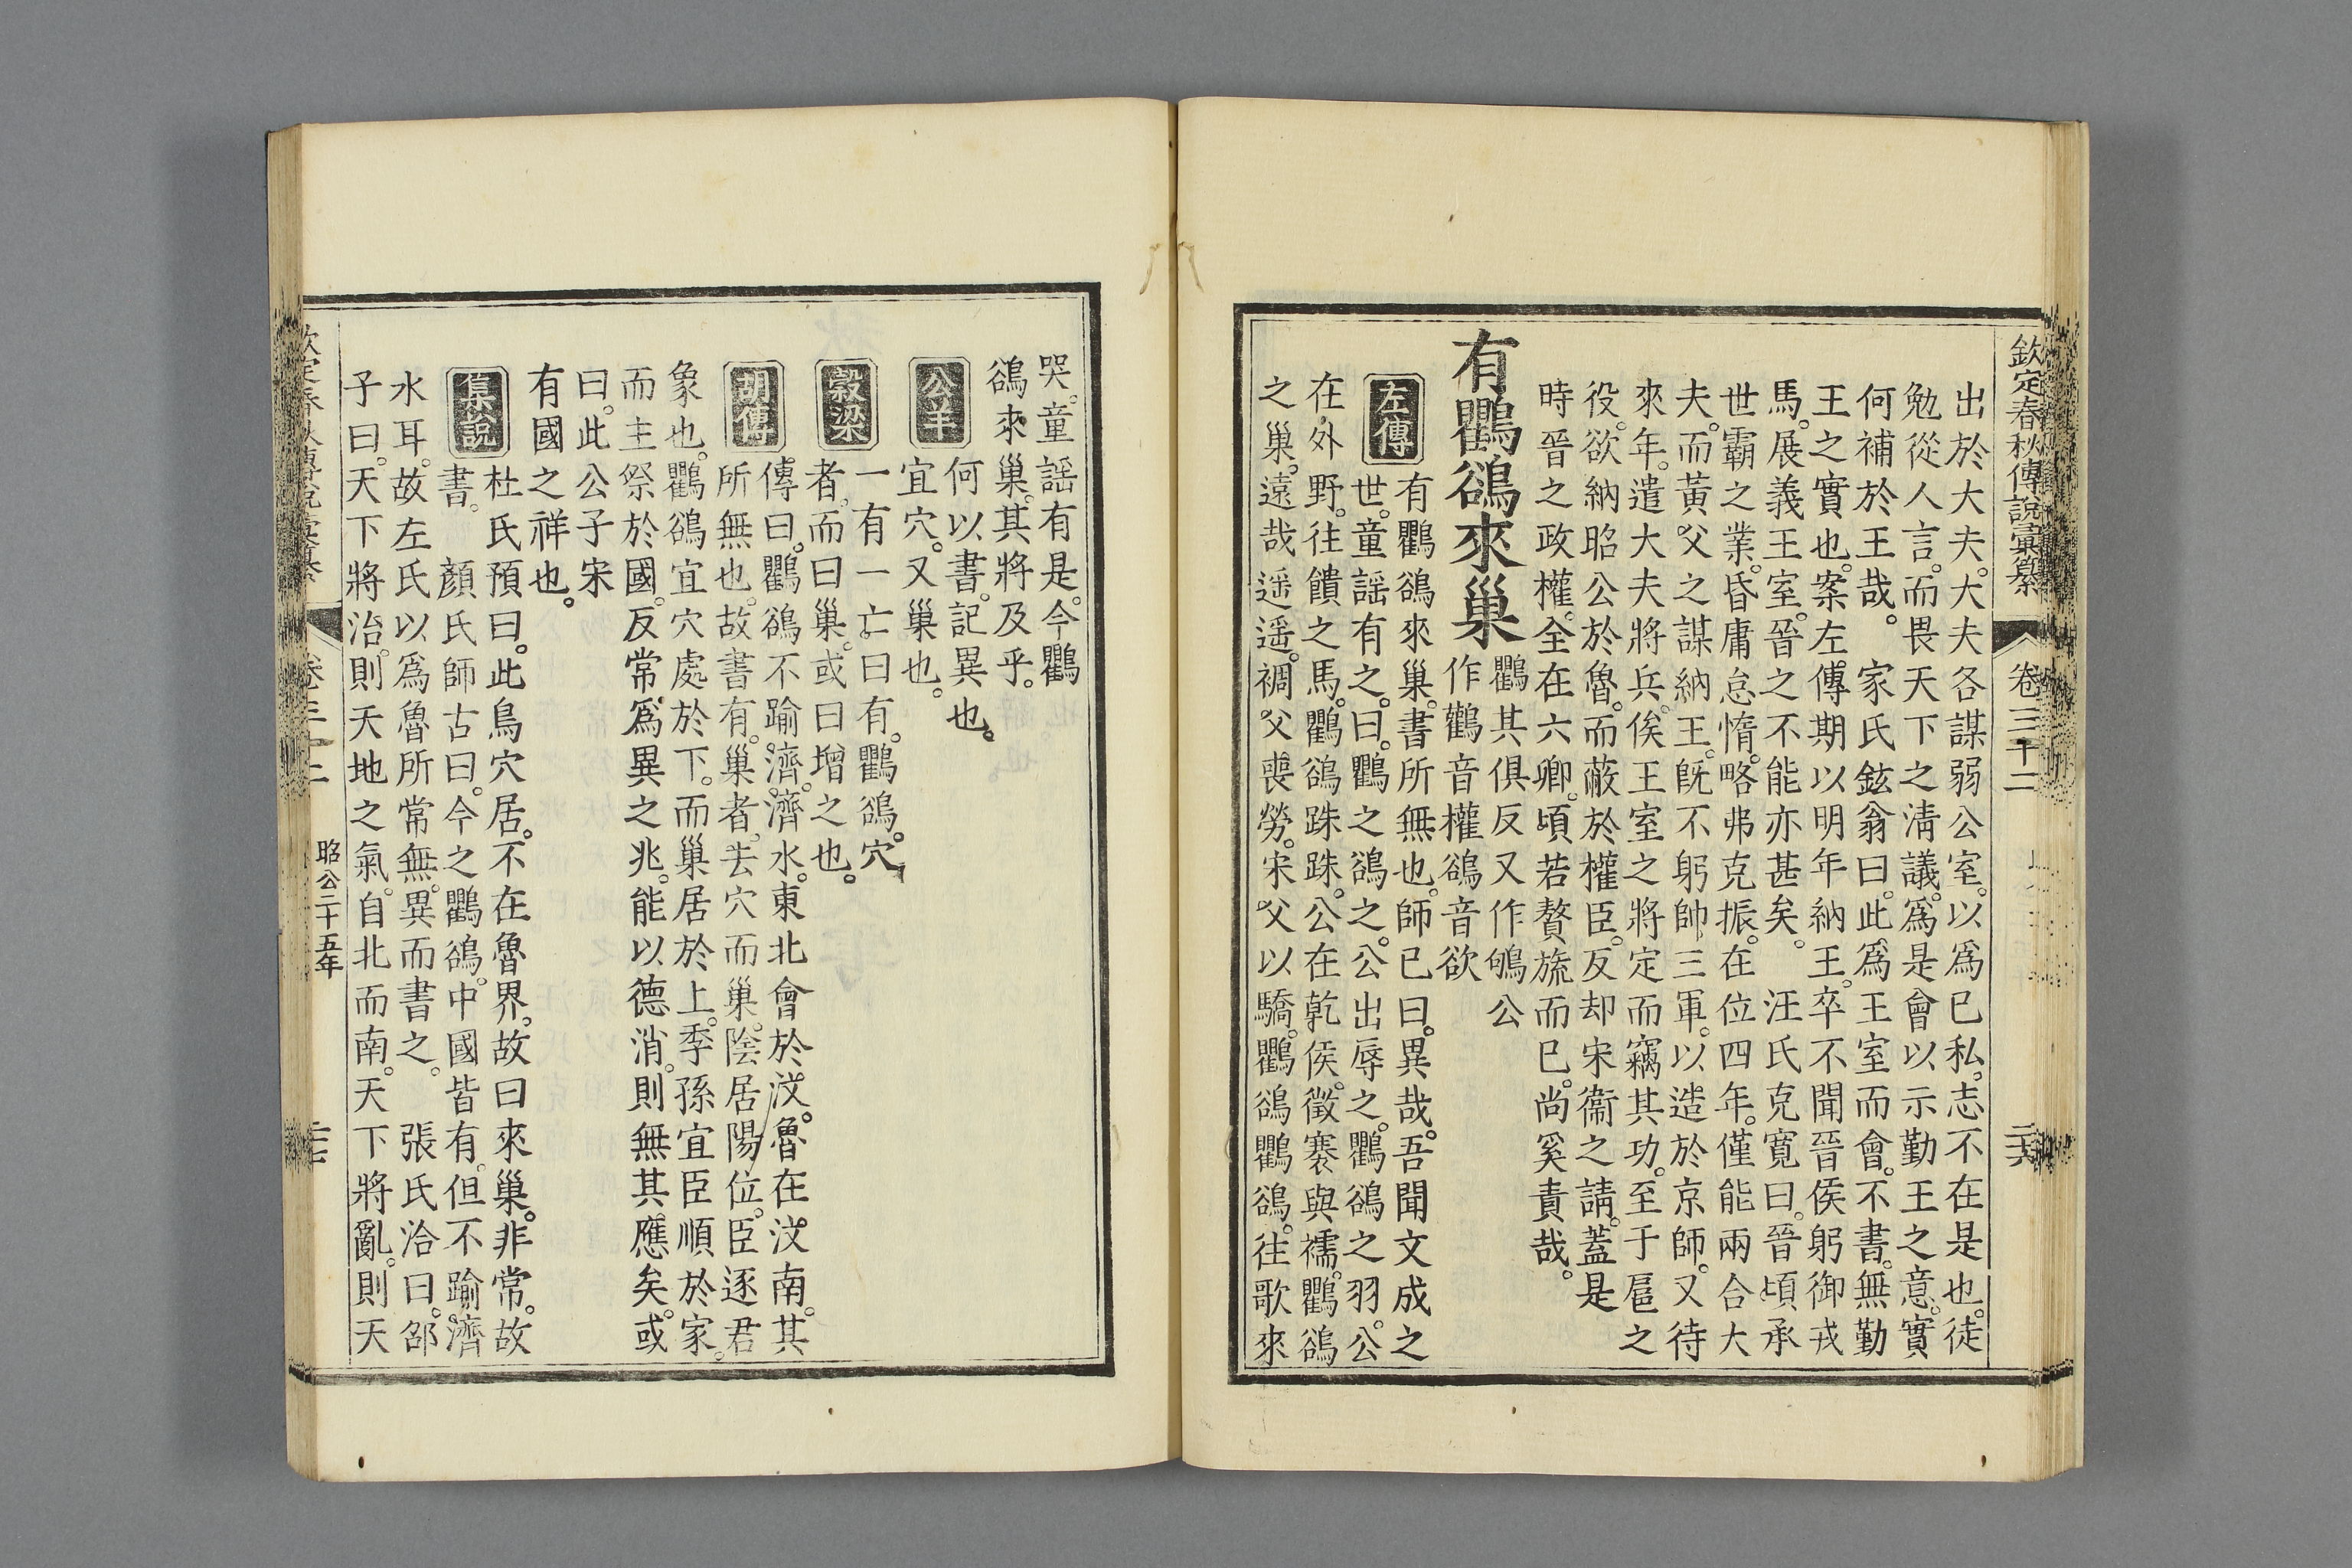 欽定春秋傳說彙纂 卷三十二 二六
出於大夫。大夫各謀弱公室。以爲已私。志不在是也。徒
勉從人言。而畏天下之淸議。爲是會以示勤王之意。實
何補於王哉。 家氏鉉翁曰。此爲王室而會。不書。無勤
王之實也。案左傳期以明年納王。卒不聞晉侯躬御戎
馬。展義王室。晉之不能亦甚矣。 汪氏克寬曰。晉頃承
世霸之業。昏庸怠惰。略弗克振。在位四年。僅能兩合大
夫。而黃父之謀納王。旣不躬帥三軍。以造於京師。又待
來年。遣大夫將兵。俟王室之將定而竊其功。至于扈之
役。欲納昭公於魯。而蔽於權臣。反却宋衞之請。蓋是
時晉之政權。全在六卿。頃若贅旒而已。尚奚責哉。
有鸜鵒來巢 鸜其俱反又作鴝公
作鸛音權鵒音欲
左傳 有鸜鵒來巢。書所無也。師已曰。異哉。吾聞文成之
世。童謡有之。曰。鸜之鵒之。公出辱之。鸜鵒之羽。公
在外野。往饋之馬。鸜鵒跦跦。公在乾侯。徵褰與襦。鸜鵒
之巢。遠哉遥遥。裯父喪勞。宋父以驕。鸜鵒鸜鵒。往歌來
哭。童謡有是。今鸜
鵒來巢。其將及乎。
公羊 何以書。記異也。
宜穴。又巢也。
穀梁 一有一亡。曰有。鸜鵒。穴
者。而曰巢。或曰增之也。
胡傳 傳曰。鸜鵒不踰濟。濟水。東北會於汶。魯在汶南。其
所無也。故書有。巢者。去穴而巢。陰居陽位。臣逐君
象也。鸜鵒宜穴處於下。而巢居於上。季孫宜臣順於家。
而主祭於國。反常爲異之兆。能以德消。則無其應矣。或
曰。此公子宋
有國之祥也。
集說 杜氏預曰。此鳥穴居。不在魯界。故曰來巢。非常。故
書。 顏氏師古曰。今之鸜鵒。中國皆有。但不踰濟
水耳。故左氏以爲魯所常無。異而書之。 張氏洽曰。邵
子曰。天下將治。則天地之氣。自北而南。天下將亂。則天
欽定春秋傳說彙纂 卷三十二 昭公二十五年 二七